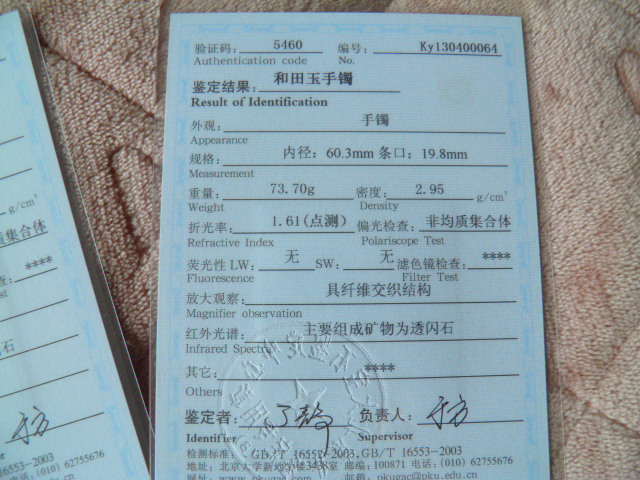 验证码: 5460 编号: Ky130400064
Authentication code No.
鉴定结果: 和田玉手镯
Result of Identification
外观: 手镯
Appearance
规格: 内径: 60.3mm 条口: 19.8mm
Measurement
重量: 73.70g 密度: 2.95 g/cm³
Weight Density
折光率: 1.61(点测) 偏光检查: 非均质集合体
Refractive Index Polariscope Test
荧光性 LW: 无 SW: 无 滤色镜检查: ****
Fluorescence Filter Test
放大观察: 具纤维交织结构
Magnifier observation
红外光谱: 主要组成矿物为透闪石
Infrared Spectra
其它: ****
Others
鉴定者: 负责人:
Identifier Supervisor
检测标准: GB/T 16552-2003, GB/T 16553-2003
地址: 北京大学新地学楼3438室 邮编: 100871 电话: (010) 62755676
网址: www.pkugac 邮箱: pkugac@pku.edu.cn
g/cm³
质集合体
****
石
16553-2003
(010) 62755676
edu.cn